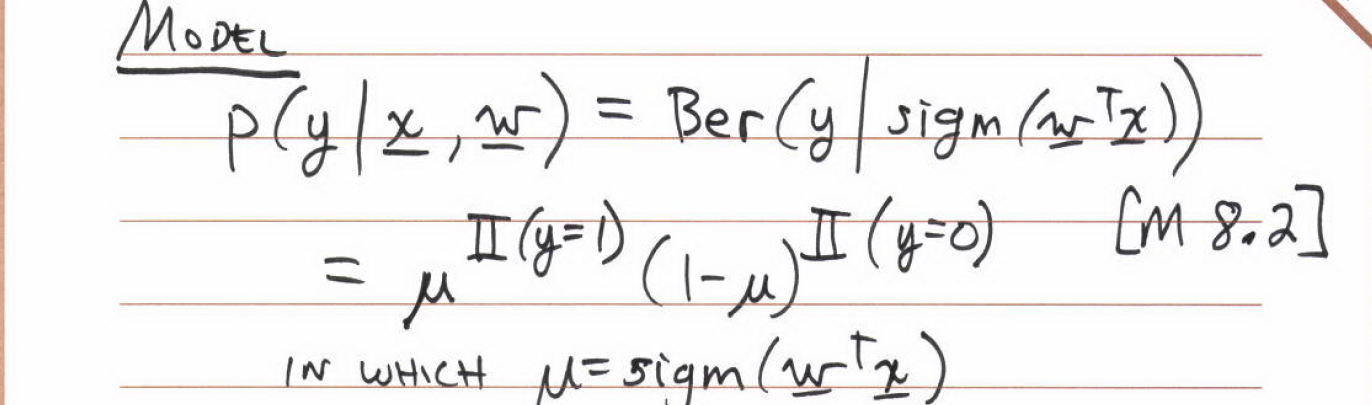 MODEL
p(y|x, w) = Ber(y| sigm(wᵀx))
= μ^𝕀(y=1) (1-μ)^𝕀(y=0) [M 8.2]
IN WHICH μ= sigm(wᵀx)